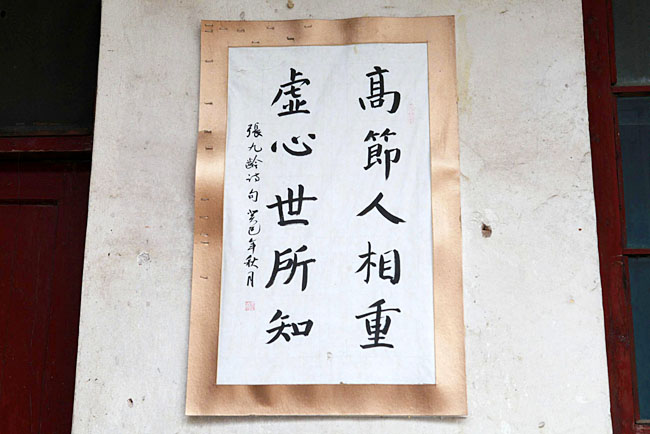 高節人相重
虚心世所知
張九龄诗句 癸巳年秋月